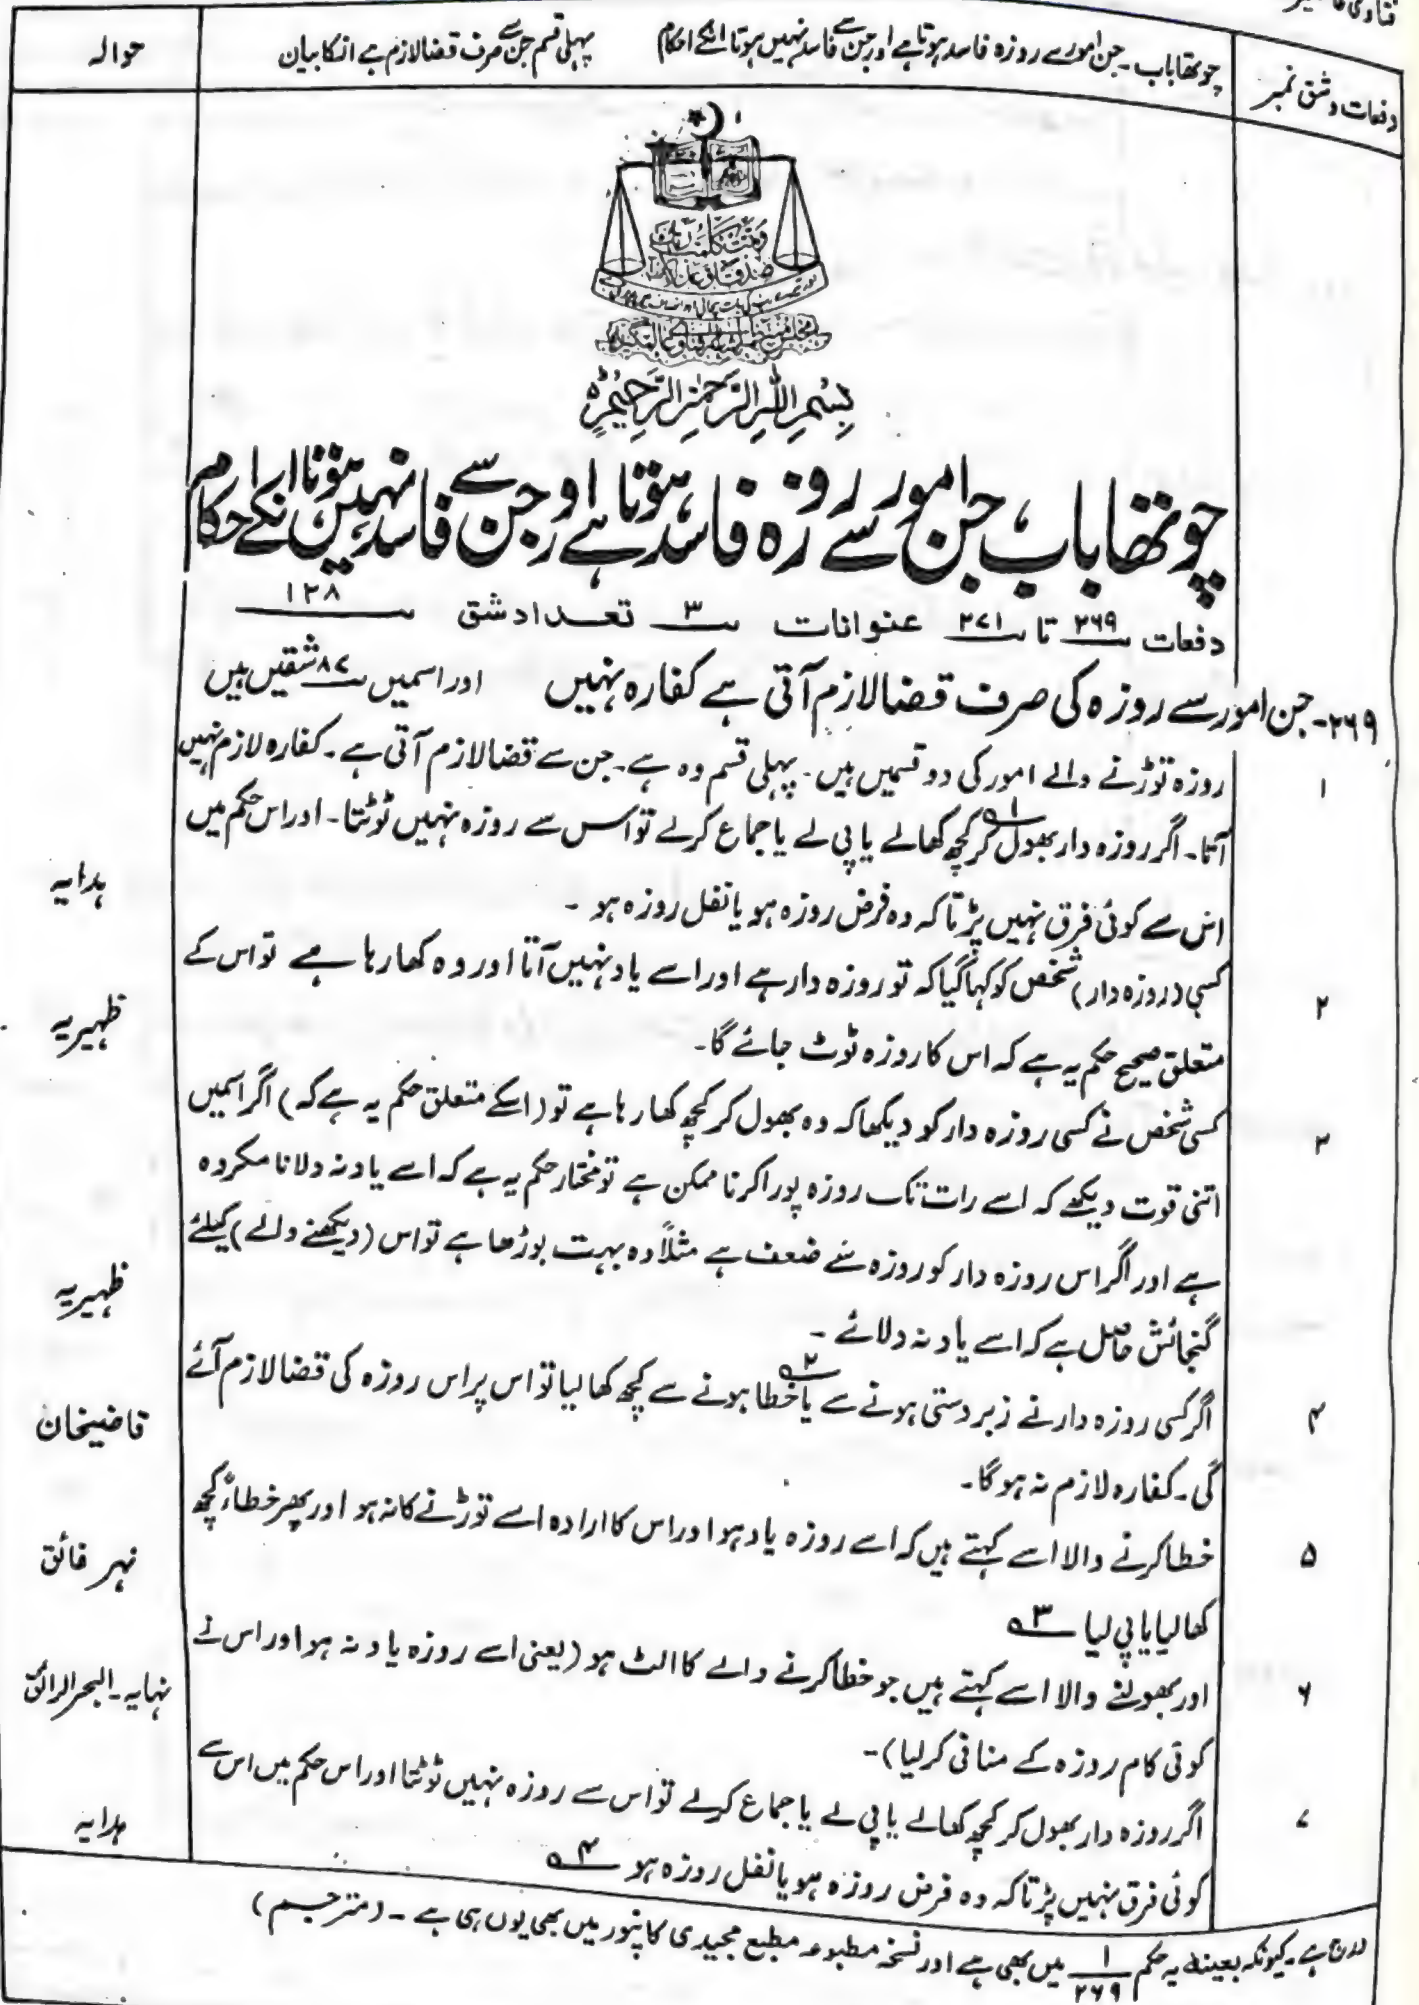 دفعات وشق نمبر
چوتھا باب۔ جن امور سے روزہ فاسد ہوتا ہے اور جن سے فاسد نہیں ہوتا انکے احکام
پہلی قسم جن سے صرف قضا لازم ہے انکا بیان
حوالہ
وَتَمَّتْ كَلِمَتُ رَبِّكَ
صِدْقًا وَّعَدْلًا
بِسْمِ اللّٰهِ الرَّحْمٰنِ الرَّحِيْمِ ہ
چوتھا باب، جن امور سے روزہ فاسد ہوتا ہے اور جن سے فاسد نہیں ہوتا انکے احکام
دفعات ۲۶۹ تا ۲۷۱ عنوانات ۳ تعداد شق ۱۲۸
۲۶۹۔ جن امور سے روزہ کی صرف قضا لازم آتی ہے کفارہ نہیں اور اسمیں ۸۷ شقیں ہیں
۱ روزہ توڑنے والے امور کی دو قسمیں ہیں۔ پہلی قسم وہ ہے۔ جن سے قضا لازم آتی ہے۔ کفارہ لازم نہیں
آتا۔ اگر روزہ دار بھول ۱؎ کر کچھ کھالے یا پی لے یا جماع کرلے تو اس سے روزہ نہیں ٹوٹتا۔ اور اس حکم میں
اس سے کوئی فرق نہیں پڑتا کہ وہ فرض روزہ ہو یا نفل روزہ ہو ۔ ہدایہ
۲ کسی (روزہ دار) شخص کو کہا گیا کہ تو روزہ دار ہے اور اسے یاد نہیں آتا اور وہ کھا رہا ہے تو اس کے
متعلق صحیح حکم یہ ہے کہ اس کا روزہ ٹوٹ جائے گا۔ ظہیریہ
۳ کسی شخص نے کسی روزہ دار کو دیکھا کہ وہ بھول کر کچھ کھا رہا ہے تو (اسکے متعلق حکم یہ ہے کہ) اگر اسمیں
اتنی قوت دیکھے کہ اسے رات تک روزہ پورا کرنا ممکن ہے تو مختار حکم یہ ہے کہ اسے یاد نہ دلانا مکروہ
ہے اور اگر اس روزہ دار کو روزہ سے ضعف ہے مثلاً وہ بہت بوڑھا ہے تو اس (دیکھنے والے) کیلئے
گنجائش حاصل ہے کہ اسے یاد نہ دلائے ۔ ظہیریہ
۴ اگر کسی روزہ دار نے زبردستی ہونے سے یا خطا ۲؎ ہونے سے کچھ کھا لیا تو اس پر اس روزہ کی قضا لازم آئے
گی۔ کفارہ لازم نہ ہو گا۔ قاضیخان
۵ خطا کرنے والا اسے کہتے ہیں کہ اسے روزہ یاد ہو اور اس کا ارادہ اسے توڑنے کا نہ ہو اور پھر خطاءً کچھ
کھا لیا یا پی لیا ۳؎ نہر فائق
۶ اور بھولنے والا اسے کہتے ہیں جو خطا کرنے والے کا الٹ ہو (یعنی اسے روزہ یاد نہ ہو اور اس نے
کوئی کام روزہ کے منافی کر لیا)۔ نہایہ۔ البحر الرائق
۷ اگر روزہ دار بھول کر کچھ کھالے یا پی لے یا جماع کرلے تو اس سے روزہ نہیں ٹوٹتا اور اس حکم میں اس سے
کوئی فرق نہیں پڑتا کہ وہ فرض روزہ ہو یا نفل روزہ ہو ۴؎ ہدایہ
ہے۔ کیونکہ بعینہ یہ حکم ۱/۲۶۹ میں بھی ہے اور نسخہ مطبوعہ مطبع مجیدی کانپور میں بھی یوں ہی ہے ۔ (مترجم)